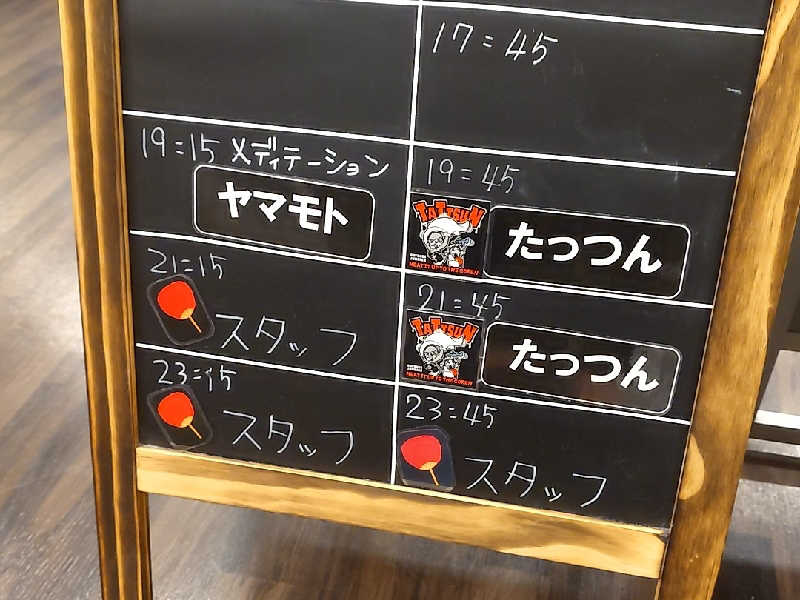 17:45
19:15 メディテーション
ヤマモト
19:45
TATTSUN
たっつん
21:15
スタッフ
21:45
TATTSUN
たっつん
23:15
スタッフ
23:45
スタッフ